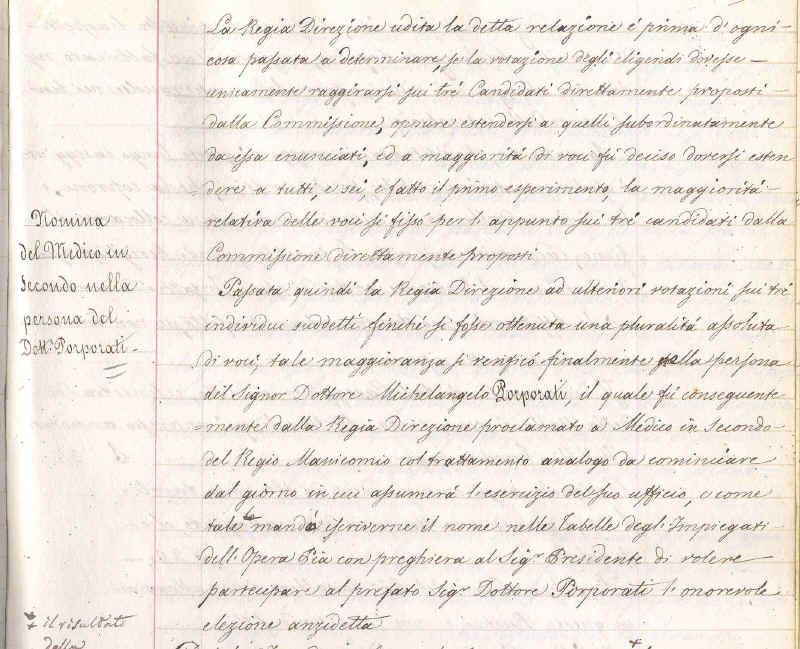 La Regia Direzione udita la detta relazione è prima d'ogni-
cosa passata a determinare, se la votazione degli eligendi dovesse -
unicamente raggirarsi sui trè Candidati direttamente proposti -
dalla Commissione, oppure estendersi a quelli subordinatamente
da essa enunciati, ed a maggiorità di voci fù deciso doversi esten
dere a tutti, e sei, e fatto il primo esperimento, la maggiorità -
relativa delle voci si fissò per l'appunto sui trè candidati dalla
Commissione direttamente proposti
Nomina
del Medico in
Secondo nella
persona del
Dott.r Porporati -
Passata quindi la Regia Direzione ad ulteriori votazioni sui trè
individui suddetti finchè si fosse ottenuta una pluralità assoluta
di voci, tale maggioranza si verificò finalmente nella persona
del Signor Dottore Michelangelo Porporati, il quale fù conseguente
=mente dalla Regia Direzione proclamato a Medico in Secondo-
del Regio Manicomio col trattamento analogo da cominciare
dal giorno in cui assumerà l'esercizio del suo ufficio, e come
tale mandò iscriverne il nome nelle Tabelle degl'Impiegati -
dell'Opera Pia con preghiera al Sig.r Presidente di volere -
partecipare al prefato Sig.r Dottore Porporati l'onorevole
elezione anzidetta
il risultato
della